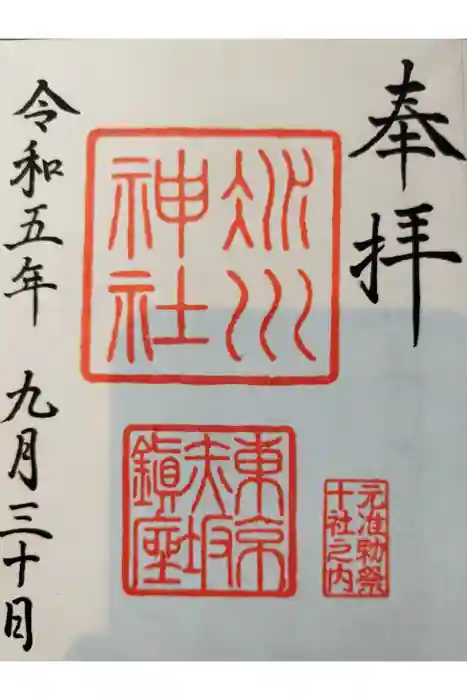 奉拝
氷川
神社
東京
赤坂
鎭座
元准勅祭
十社之内
令和五年 九月三十日